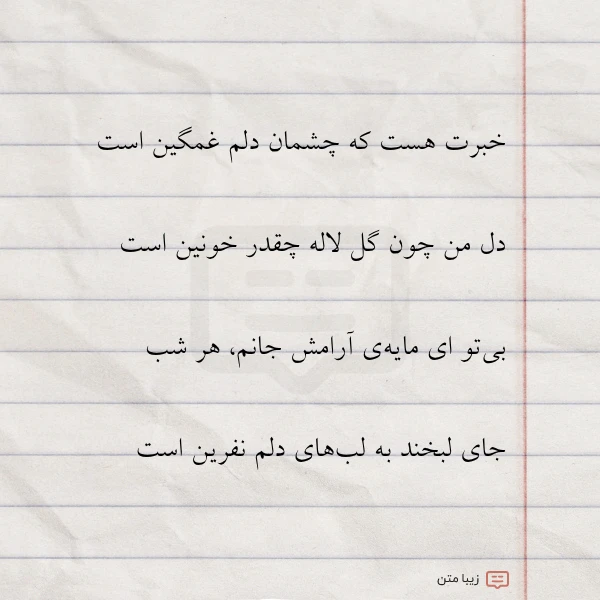 خبرت هست که چشمان دلم غمگین است
دل من چون گل لاله چقدر خونین است
بی‌تو ای مایه‌ی آرامش جانم، هر شب
جای لبخند به لب‌های دلم نفرین است
زیبا متن